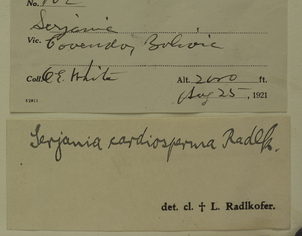 No.
Serjania
Vic. Covendo, Bolivia
Coll. O E White Alt. 2000 ft.
Aug 25, 1921
Serjania cardiosperma Radlk.
det. cl. † L. Radlkofer.